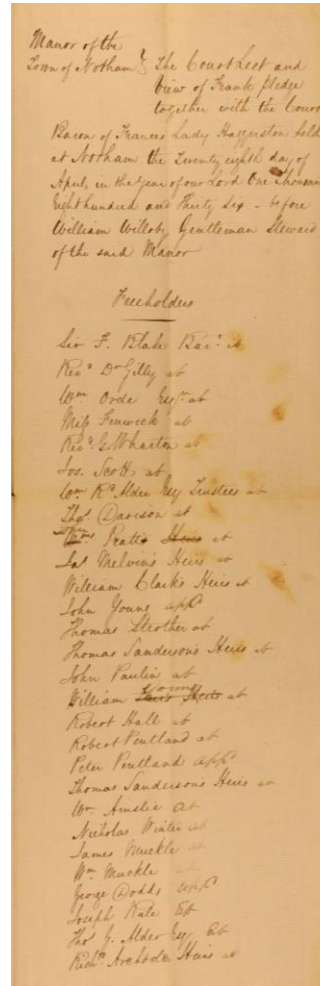 Manor of the
Town of Norham } The Court Leet and
View of Frank pledge
together with the Court
Baron of Frances Lady Haggerston held
at Norham the Twenty eighth day of
April, in the Year of our Lord One Thousand
Eight hundred and Thirty Six - before
William Willoby Gentleman Steward
of the said Manor
Freeholders
Sir F. Blake Bart at
Revd Dr Gilly at
Wm Orde Esqr at
Miss Fenwick at
Revd G. Wharton at
Jos. Scott at
Wm Rd Alder Esq Trustees at
Thos Davison at
Pratts Heirs at
Jas Melvin's Heirs at
William Clarks Heirs at
John Young appd
Thomas Strother at
Thomas Sanderson's Heirs at
John Paulin at
William Young at
Robert Hall at
Robert Pentland at
Peter Pentland appd
Thomas Sanderson's Heirs at
Wm Amslie at
Nicholas Winter at
James Muckle at
Wm Muckle at
George Dodds appd
Joseph Kale at
Thos G. Alder Esq at
Richd Heirs at